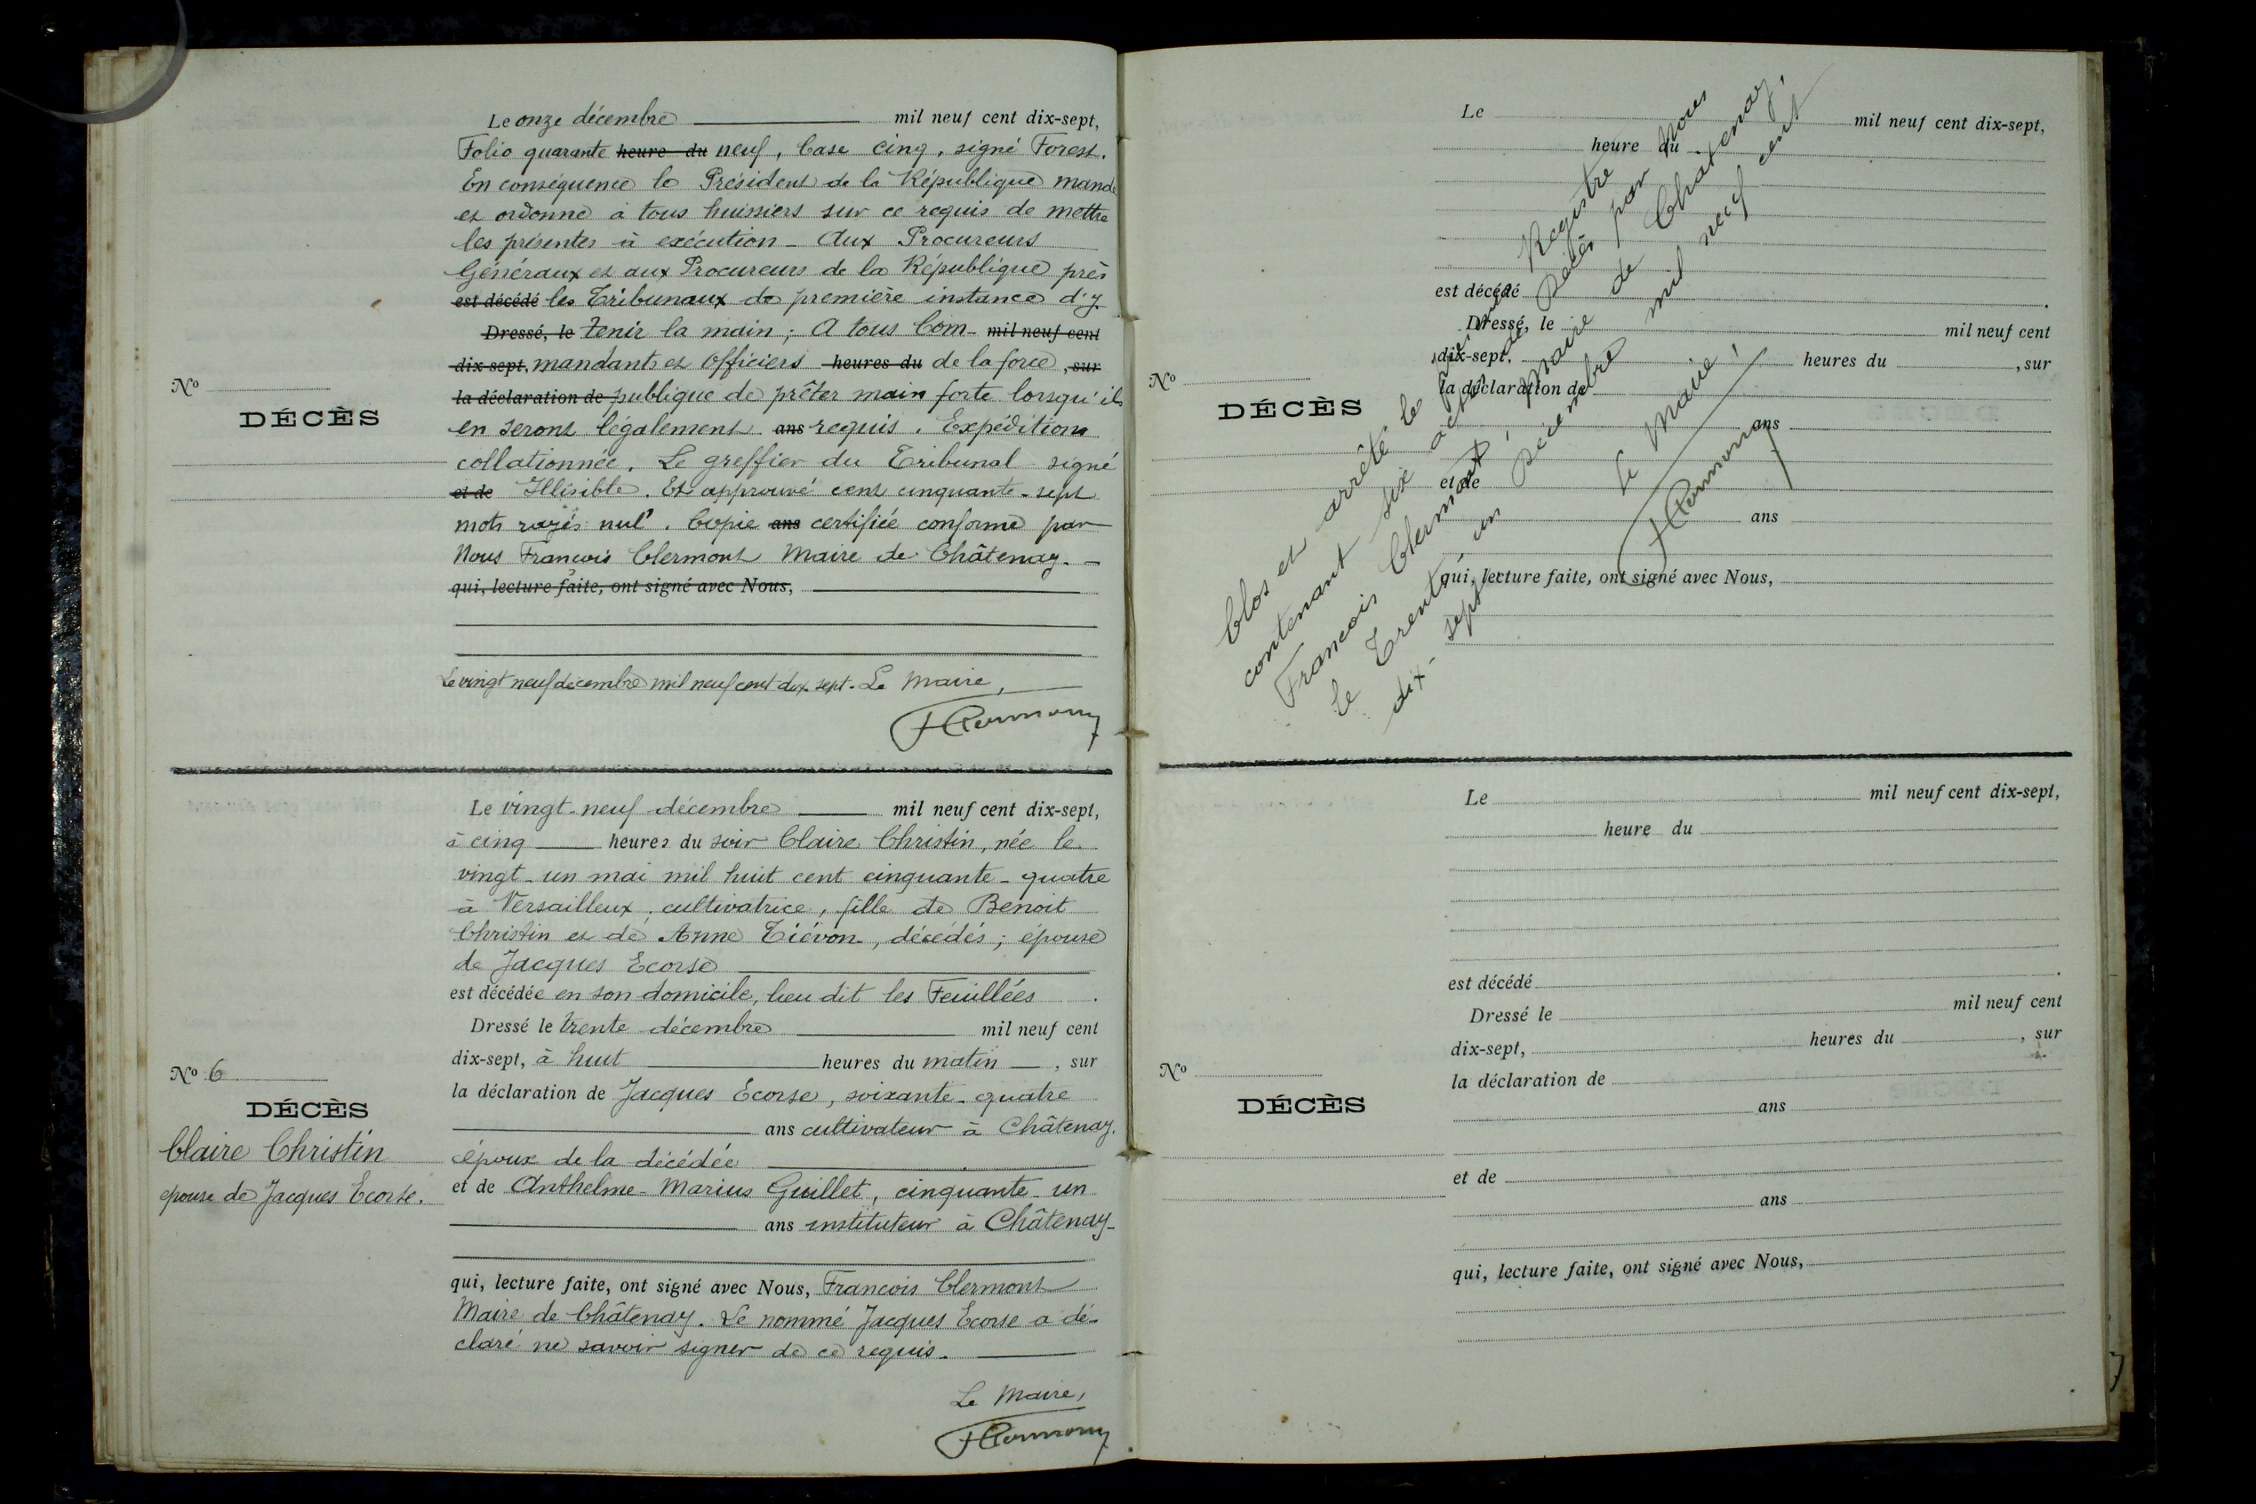 Le onze décembre mil neuf cent dix-sept,
Folio quarante heure du neuf, Case cinq, signé Forest.
En conséquence le Président de la République mande
et ordonne à tous huissiers sur ce requis de mettre
les présentes à exécution - Aux Procureurs
Généraux et aux Procureurs de la République près
est décédé les Tribunaux de première instance d'y
Dressé, le tenir la main ; A tous Com- mil neuf cent
dix-sept, mandants et Officiers heures du de la force, sur
la déclaration de publique de prêter main forte lorsqu'ils
en seront légalement ans requis. Expédition
Nº
DÉCÈS
collationnée. Le greffier du Tribunal signé
et de Illisible. Et approuvé cent cinquante-sept
mots rayés nul. Copie ans certifiée conforme par
Nous Francois Clermont Maire de Châtenay. -
qui, lecture faite, ont signé avec Nous,
Le vingt neuf décembre mil neuf cent dix-sept. Le Maire,
FClermont
Le vingt-neuf décembre mil neuf cent dix-sept,
à cinq heures du soir Claire Christin, née le
vingt-un mai mil huit cent cinquante-quatre
à Versailleux, cultivatrice, fille de Benoit
Christin et de Anne Tiévon, décédés ; épouse
de Jacques Ecorse
est décédée en son domicile, lieu dit les Feuillées.
Dressé le trente décembre mil neuf cent
dix-sept, à huit heures du matin, sur
la déclaration de Jacques Ecorse, soixante-quatre
ans cultivateur à Châtenay.
époux de la décédée
et de Anthelme-Marius Guillet, cinquante-un
ans instituteur à Châtenay-
qui, lecture faite, ont signé avec Nous, Francois Clermont
Maire de Châtenay. Le nommé Jacques Ecorse a dé-
claré ne savoir signer de ce requis.
Le Maire,
FClermont
Nº 6
DÉCÈS
Claire Christin
epouse de Jacques Ecorse.
Le mil neuf cent dix-sept,
heure du
est décédé.
Dressé, le mil neuf cent
dix-sept, heures du, sur
la déclaration de
ans
et de
ans
qui, lecture faite, ont signé avec Nous,
Nº
DÉCÈS
Clos et arrêté le Registre
contenant six actes de Décès par Nous
Francois Clermont, Maire de Châtenay,
le Trente un Décembre mil neuf cent
dix-sept
Le Maire,
FClermont
Le mil neuf cent dix-sept,
heure du
est décédé.
Dressé le mil neuf cent
dix-sept, heures du, sur
la déclaration de
ans
et de
ans
qui, lecture faite, ont signé avec Nous,
Nº
DÉCÈS